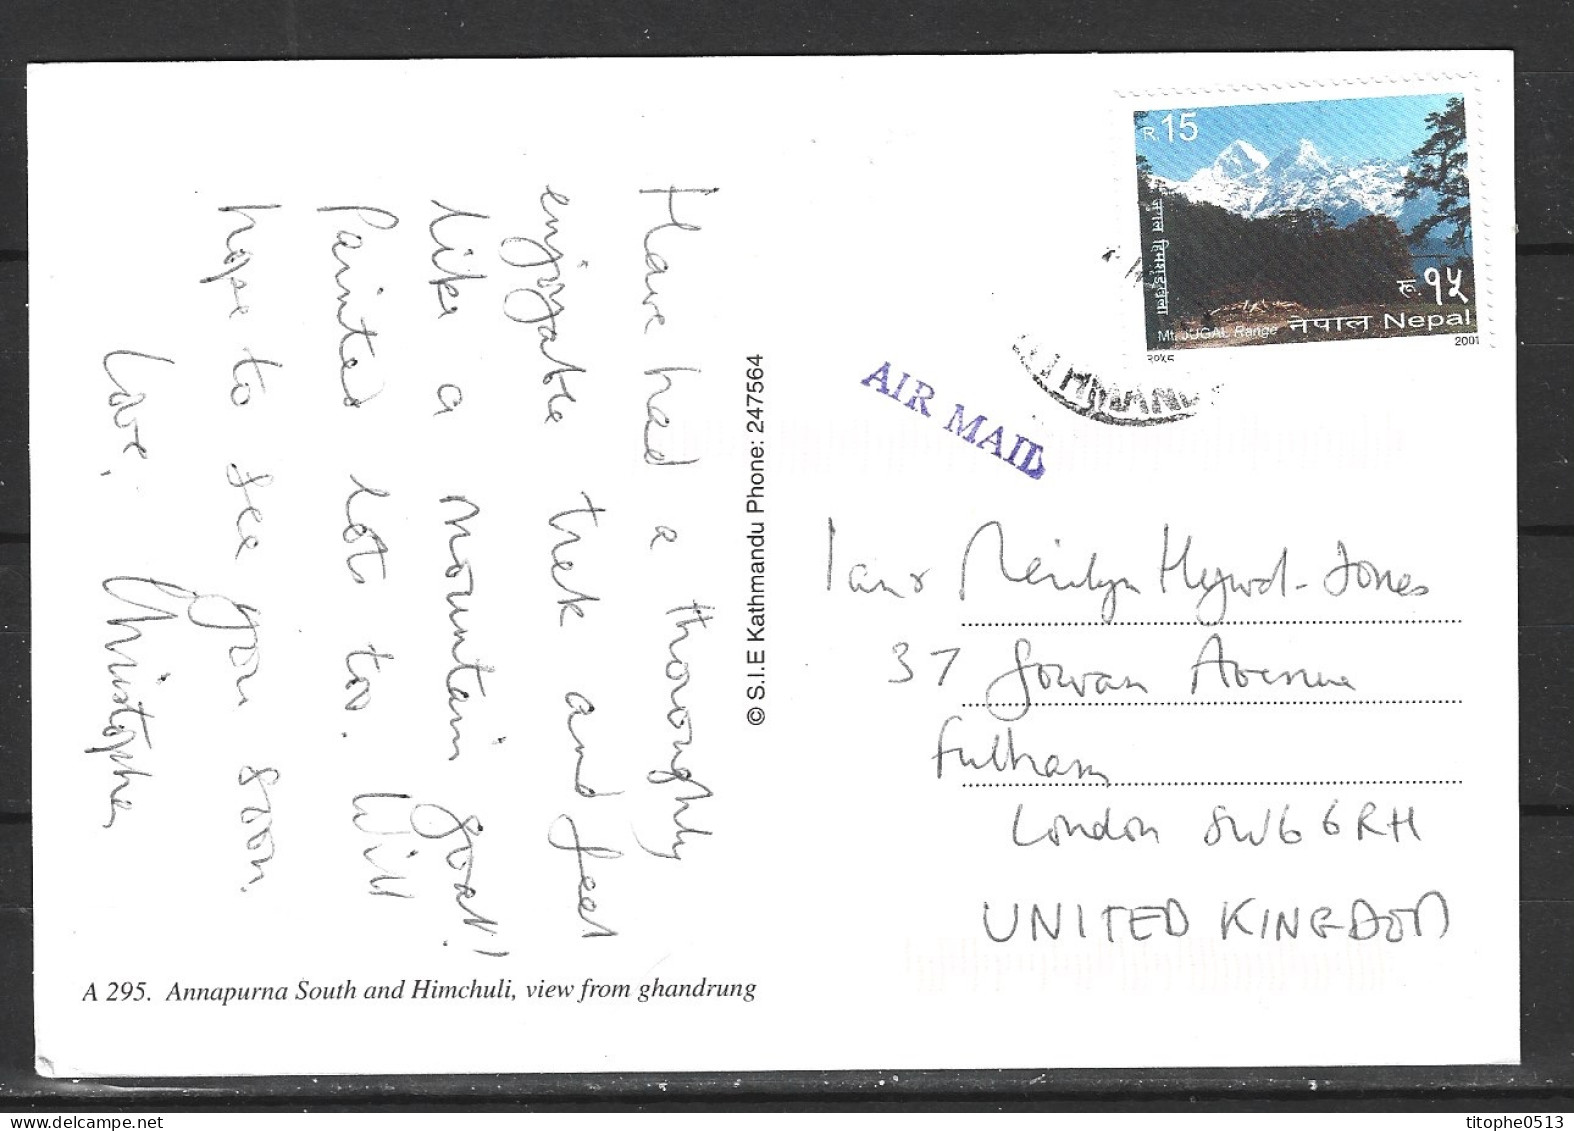 Have had a thoroughly
enjoyable trek and feel
like a mountain goat!!
Painted lots too. Will
hope to see you soon.
Love,
Christopher
© S.I.E Kathmandu Phone: 247564
A 295. Annapurna South and Himchuli, view from ghandrung
R. 15
जुगल हिमश्रृङ्खला
रू. १५
Mt. JUGAL Range
नेपाल Nepal
2001
AIR MAIL
Ian & Merilyn Hywel-Jones
37 Gowan Avenue
Fulham
London SW6 6RH
UNITED KINGDOM
titophe0513